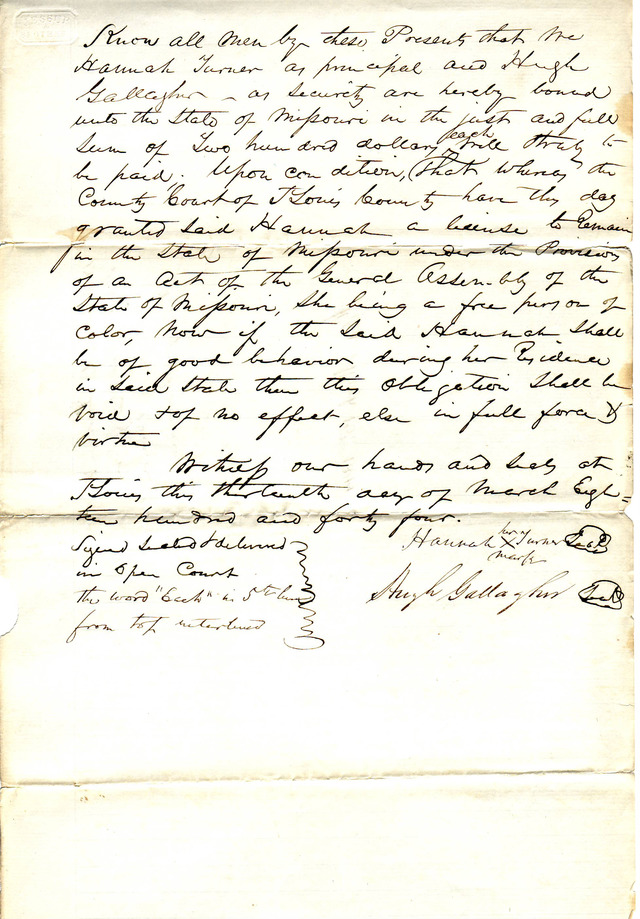 Know all Men by these Presents that We
Hannah Turner as principal and Hugh
Gallagher - as security are hereby bound
unto the State of Missouri in the just and full
sum of Two hundred dollars each will & truly to
be paid. Upon condition, That whereas the
County Court of St Louis County have this day
granted Said Hannah a license to Remain
in the State of Missouri under the Provisions
of an Act of the General Assembly of the
State of Missouri, She being a free person of
Color, Now if the Said Hannah Shall
be of good behavior during her Residence
in Said State then this Obligation Shall be
void & of no effect, else in full force &
virtue
Witness our hands and seals at
St Louis this thirteenth day of March Eigh=
teen hundred and forty four.
Signed Sealed & delivered
in Open Court
the word "Each" in 5th line
from top interlined
Hannah her X mark Turner Seal
Hugh Gallagher Seal